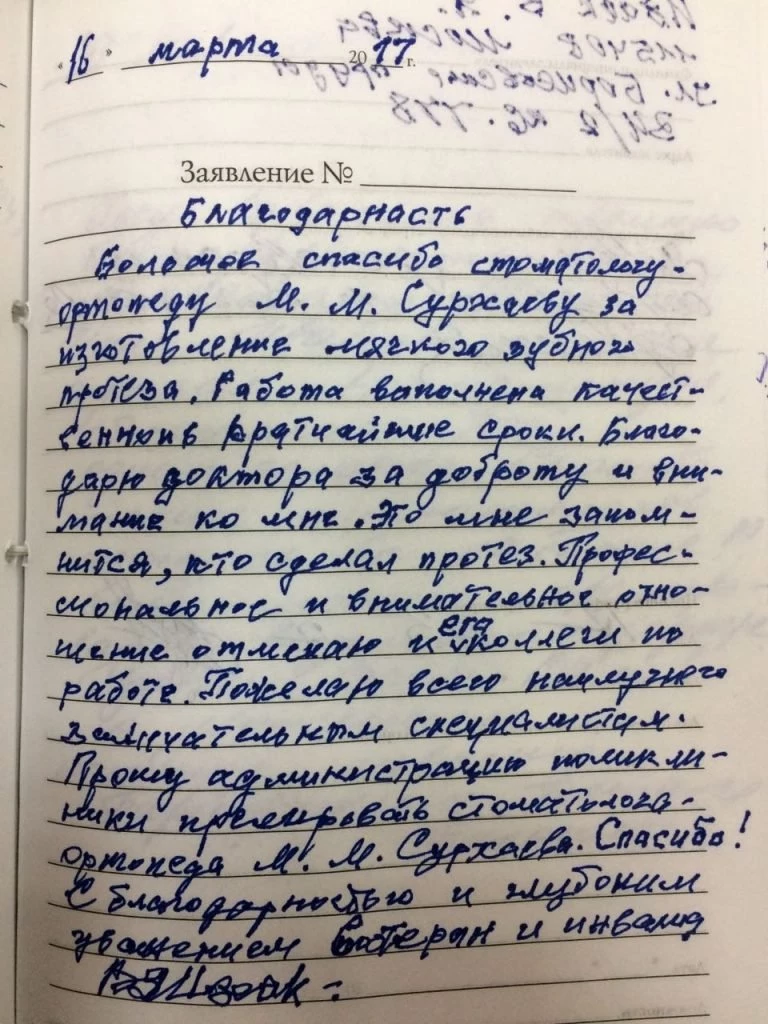 "16" марта 2017 г.
Заявление №
Благодарнасть
Большое спасибо стоматологу-
ортопеду М. М. Сурхаеву за
изготовление мягкого зубного
протеза. Работа выполнена качест-
венно в кратчайшие сроки. Благо-
дарю доктора за доброту и вни-
мание ко мне. Это мне запом-
нится, кто сделал протез. Профес-
сиональное и внимательное отно-
шение отмечаю и его коллеги по
работе. Пожелаю всего наилучшего
замечательным специалистам.
Прошу администрацию поликли-
ники премировать стоматолога-
ортопеда М. М. Сурхаева. Спасибо!
С благодарностью и глубоким
уважением Ветеран и инвалид